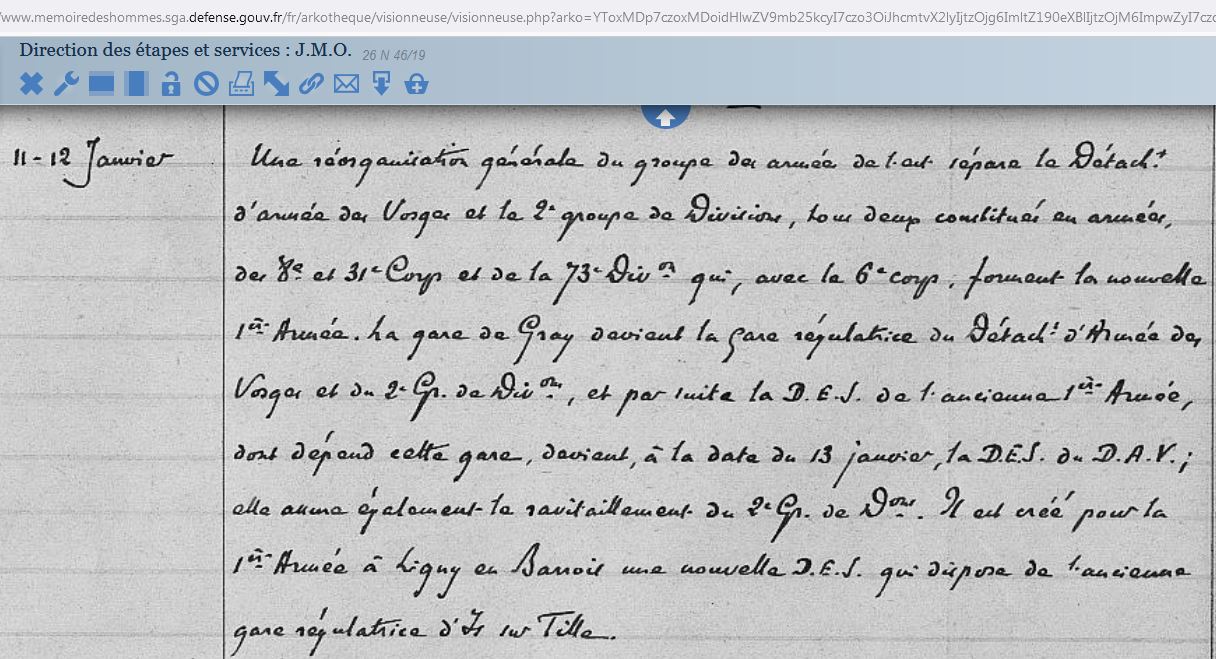 www.memoiredeshommes.sga.defense.gouv.fr/fr/arkotheque/visionneuse/visionneuse.php?arko=
Direction des étapes et services : J.M.O. 26 N 46/19
11 - 12 Janvier
Une réorganisation générale du groupe des armées de l'est sépara le Détacht
d'armée des Vosges et le 2e groupe de Divisions, tous deux constitués en armées,
des 8e et 31e Corps et de la 73e Divon qui, avec le 6e corps, forment la nouvelle
1ère Armée. La gare de Gray devient la gare régulatrice du Détacht d'Armée des
Vosges et du 2e Gr. de Divons, et par suite la D.E.S. de l'ancienne 1ère Armée,
dont dépend cette gare, devient, à la date du 13 janvier, la D.E.S. du D.A.V. ;
elle assure également le ravitaillement du 2e Gr. de Dons. Il est créé pour la
1ère Armée à Ligny en Barrois une nouvelle D.E.S. qui dispose de l'ancienne
gare régulatrice d'Is sur Tille.